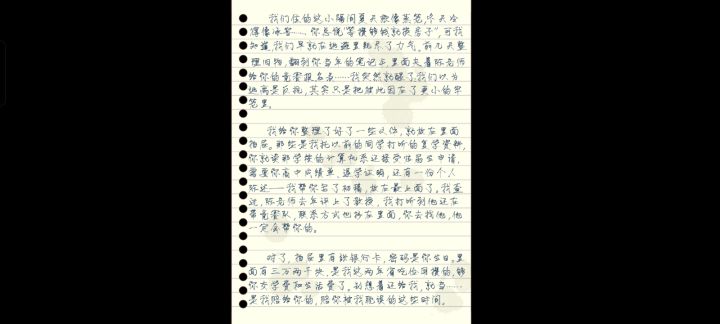 我们住的这小隔间夏天就像蒸笼,冬天冷
得像冰窖……你总说“等攒够钱就换房子”,可我
知道,我们早就在逃避里耗尽了力气。前几天整
理旧物,翻到你当年的笔记本,里面夹着陈老师
给你的竞赛报名表……我突然就醒了,我们以为
逃离是反抗,其实只是把彼此困在了更小的牢
笼里。
我给你整理了好了一些文件,就放在里面
抽屉。那些是我托以前的同学打听的复学资料,
你就读那学校的计算机系还接受往届生申请,
需要你高中成绩单、退学证明,还有一份个人
陈述——我帮你写了初稿,放在最上面了。我查
过,陈老师去年评上了教授,我打听到他还在
带竞赛队,联系方式也抄在里面,你去找他,他
一定会帮你的。
对了,抽屉里有张银行卡,密码是你生日。里
面有三万两千块,是我这两年省吃俭用攒的,够
你交学费和生活费了。别想着还给我,就当……
是我赔给你的,赔你被我耽误的这些时间。